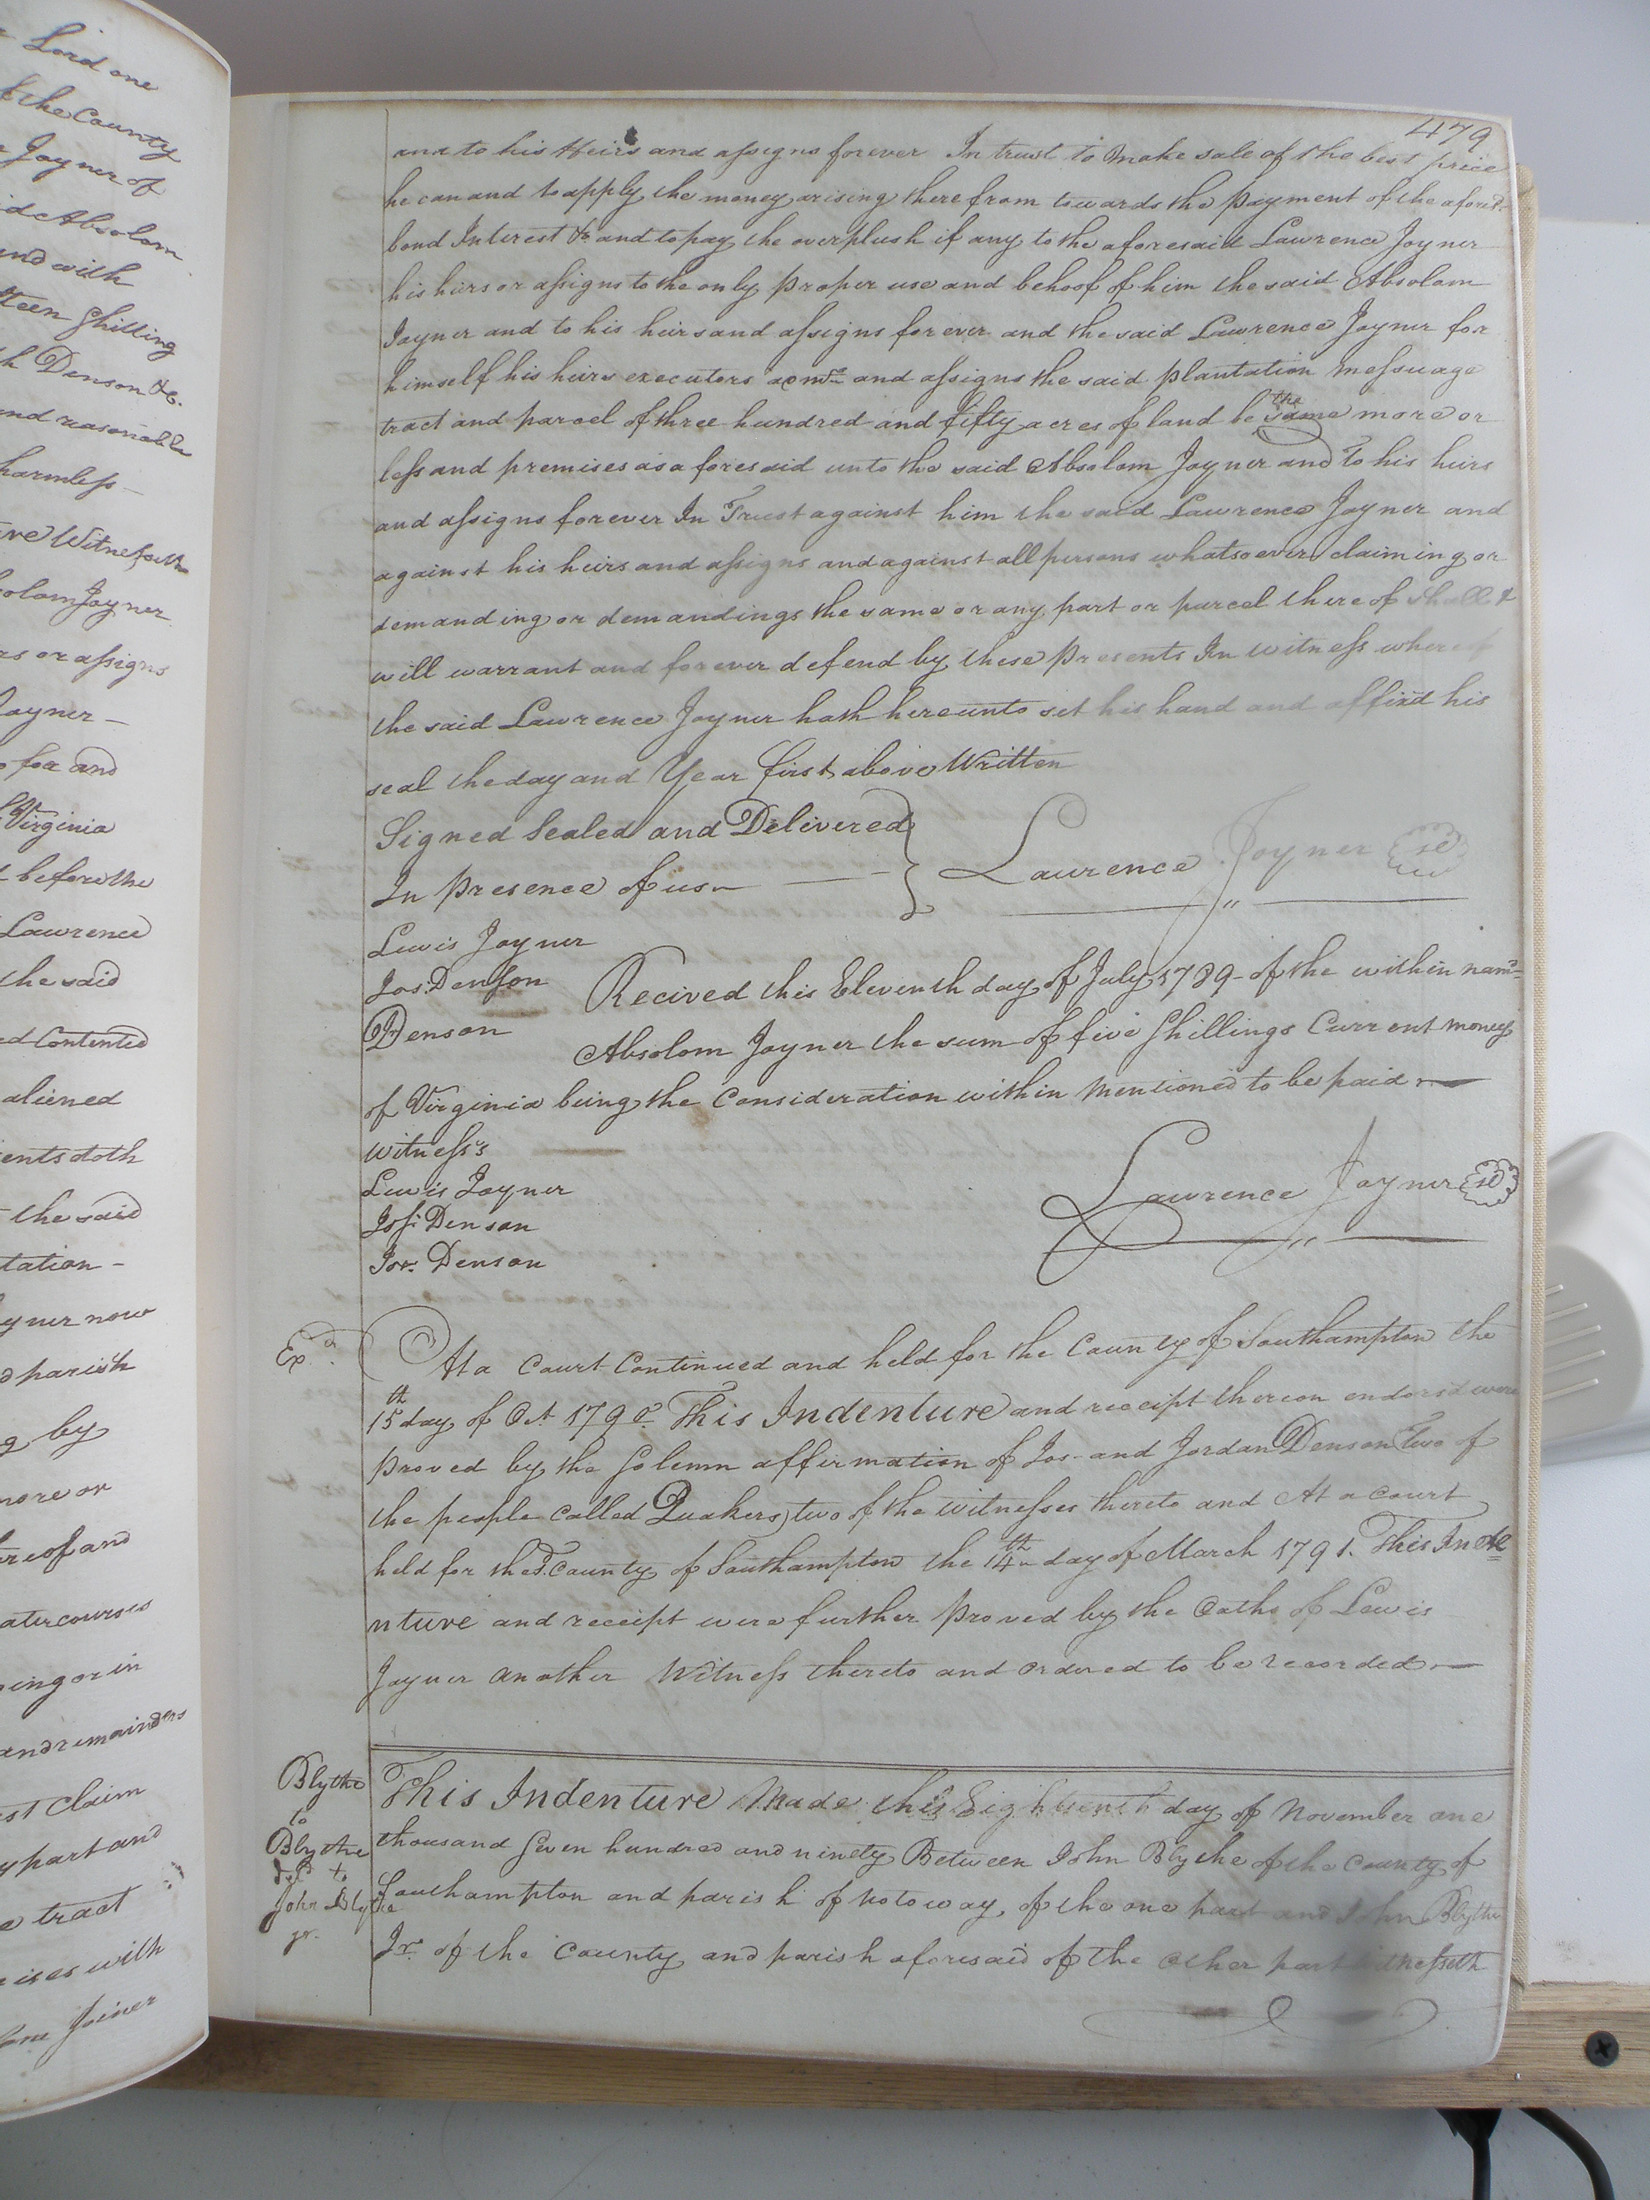 Lord one
of the County
Joyner of
id Absolom
and with
teen Shilling
h Denson &c.
and reasonable
harmless
Witnesseth
olom Joyner
rs or assigns
Joyner
for and
Virginia
before the
Lawrence
the said
ed Contented
aliened
ents doth
the said
tation
yner now
parish
by
more or
ereof and
atercourses
ing or in
and remainders
est claim
y part and
tract
ises with
Joiner
479
and to his Heirs and assigns forever In trust to make sale of the best price
he can and to apply the money arising there from towards the payment of the aforesd.
bond Interest &c and to pay the overplush if any to the aforesaid Lawrence Joyner
his heirs or assigns to the only proper use and behoof of him the said Absolam
Joyner and to his heirs and assigns for ever and the said Lawrence Joyner for
himself his heirs executors and assigns the said plantation messuage
tract and parcel of three hundred and fifty acres of land be the same more or
less and premises as aforesaid unto the said Absolom Joyner and to his heirs
and assigns forever In Trust against him the said Lawrence Joyner and
against his heirs and assigns and against all persons whatsoever claiming or
demanding or demandings the same or any part or parcel there of shall &
will warrant and forever defend by these presents In witness whereof
the said Lawrence Joyner hath hereunto set his hand and affix'd his
seal the day and Year first above Written
Signed Sealed and Delivered
In presence of us
Lawrence Joyner
Lewis Joyner
Jos. Denson
Jr. Denson
Recived this Eleventh day of July 1789 of the within namd
Absolom Joyner the sum of five Shillings Current money
of Virginia being the Consideration within Mentioned to be paid
witness's
Lewis Joyner
Jos. Denson
Jor. Denson
Lawrence Joyner
Exd.
At a Court Continued and held for the County of Southampton the
15th day of Oct 1790. This Indenture and receipt thereon endorsd were
proved by the Solemn affirmation of Jos. and Jordan Denson two of
the people Called Quakers) two of the witnesses thereto and At a Court
held for the sd. County of Southampton the 14th day of March 1791. This Inde
nture and receipt were further proved by the Oaths of Lewis
Joyner another Witness thereto and ordered to be recorded
Blythe
to
Blythe
deld to
John Blythe
jr.
This Indenture Made this Eighteenth day of November one
thousand Seven hundred and ninety Between John Blythe of the County of
Southampton and parish of Notoway, of the one part and John Blythe
Jr. of the County and parish aforesaid of the other part Witnesseth